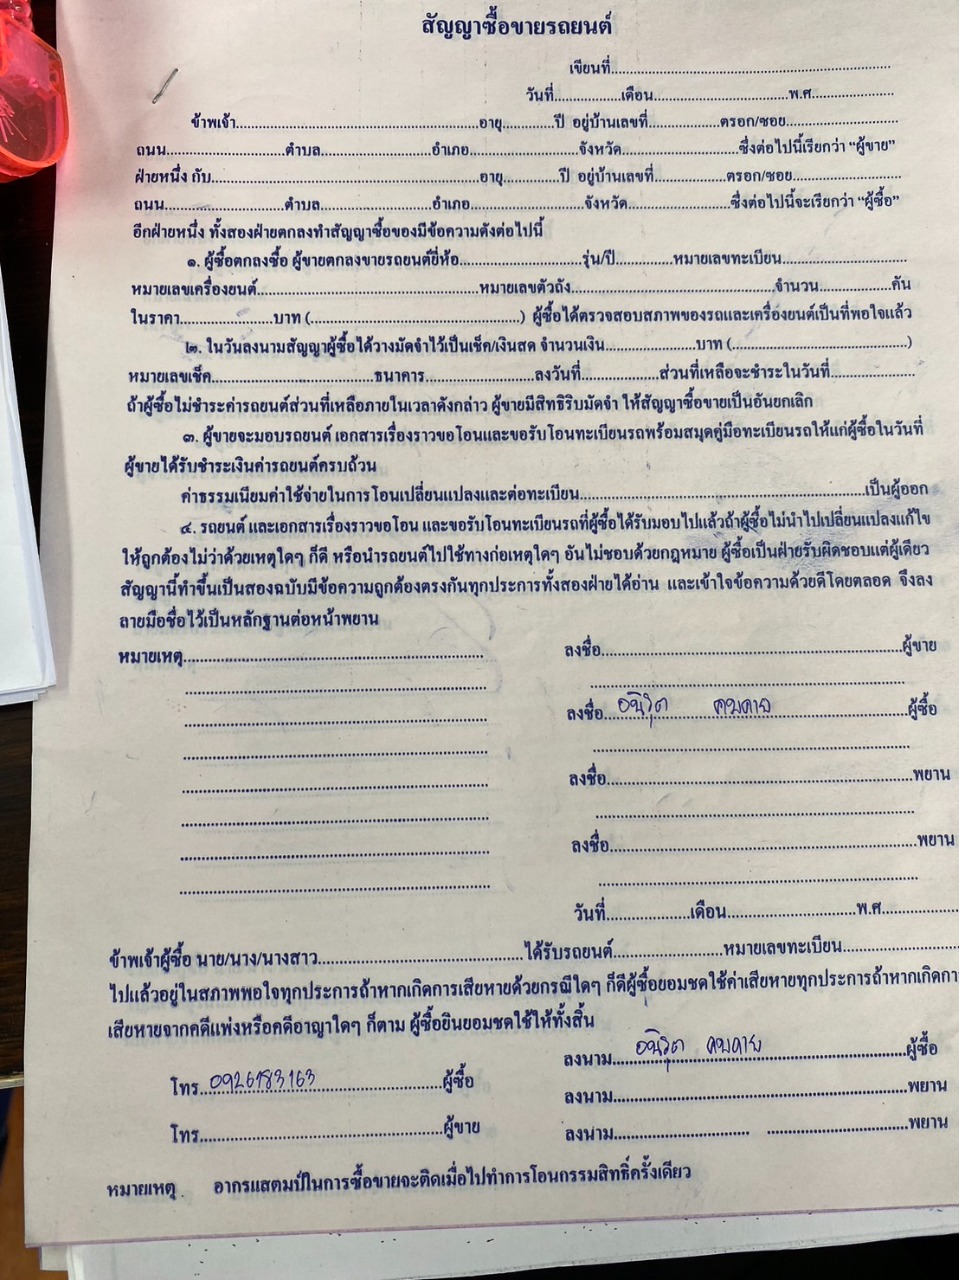 สัญญาซื้อขายรถยนต์
เขียนที่................................................................
วันที่................เดือน................................พ.ศ....................
ข้าพเจ้า............................................................อายุ............ปี อยู่บ้านเลขที่.................ตรอก/ซอย............................
ถนน.............................ตำบล............................อำเภอ............................จังหวัด............................ซึ่งต่อไปนี้เรียกว่า “ผู้ขาย”
ฝ่ายหนึ่ง กับ..................................................................อายุ.............ปี อยู่บ้านเลขที่.................ตรอก/ซอย...........................
ถนน.............................ตำบล............................อำเภอ............................จังหวัด.........................ซึ่งต่อไปนี้จะเรียกว่า “ผู้ซื้อ”
อีกฝ่ายหนึ่ง ทั้งสองฝ่ายตกลงทำสัญญาซื้อของมีข้อความดังต่อไปนี้
๑. ผู้ซื้อตกลงซื้อ ผู้ขายตกลงขายรถยนต์ยี่ห้อ..............................รุ่น/ปี..............หมายเลขทะเบียน..............................
หมายเลขเครื่องยนต์......................................................หมายเลขตัวถัง..................................................จำนวน.................คัน
ในราคา.......................บาท (...................................................) ผู้ซื้อได้ตรวจสอบสภาพของรถและเครื่องยนต์เป็นที่พอใจแล้ว
๒. ในวันลงนามสัญญาผู้ซื้อได้วางมัดจำไว้เป็นเช็ค/เงินสด จำนวนเงิน......................บาท (...........................................)
หมายเลขเช็ค.......................................ธนาคาร..........................ลงวันที่...................ส่วนที่เหลือจะชำระในวันที่....................
ถ้าผู้ซื้อไม่ชำระค่ารถยนต์ส่วนที่เหลือภายในเวลาดังกล่าว ผู้ขายมีสิทธิริบมัดจำ ให้สัญญาซื้อขายเป็นอันยกเลิก
๓. ผู้ขายจะมอบรถยนต์ เอกสารเรื่องราวขอโอนและขอรับโอนทะเบียนรถพร้อมสมุดคู่มือทะเบียนรถให้แก่ผู้ซื้อในวันที่
ผู้ขายได้รับชำระเงินค่ารถยนต์ครบถ้วน
ค่าธรรมเนียมค่าใช้จ่ายในการโอนเปลี่ยนแปลงและต่อทะเบียน....................................................................เป็นผู้ออก
๔. รถยนต์ และเอกสารเรื่องราวขอโอน และขอรับโอนทะเบียนรถที่ผู้ซื้อได้รับมอบไปแล้วถ้าผู้ซื้อไม่นำไปเปลี่ยนแปลงแก้ไข
ให้ถูกต้องไม่ว่าด้วยเหตุใดๆ ก็ดี หรือนำรถยนต์ไปใช้ทางก่อเหตุใดๆ อันไม่ชอบด้วยกฎหมาย ผู้ซื้อเป็นฝ่ายรับผิดชอบแต่ผู้เดียว
สัญญานี้ทำขึ้นเป็นสองฉบับมีข้อความถูกต้องตรงกันทุกประการทั้งสองฝ่ายได้อ่าน และเข้าใจข้อความด้วยดีโดยตลอด จึงลง
ลายมือชื่อไว้เป็นหลักฐานต่อหน้าพยาน
หมายเหตุ.......................................................................... ลงชื่อ..........................................................................ผู้ขาย
ลงชื่อ อนิรุต คมคาย ผู้ซื้อ
ลงชื่อ..........................................................................พยาน
ลงชื่อ..........................................................................พยาน
วันที่....................เดือน...............................พ.ศ....................
ข้าพเจ้าผู้ซื้อ นาย/นาง/นางสาว..................................................ได้รับรถยนต์...........................หมายเลขทะเบียน............................
ไปแล้วอยู่ในสภาพพอใจทุกประการถ้าหากเกิดการเสียหายด้วยกรณีใดๆ ก็ดีผู้ซื้อยอมชดใช้ค่าเสียหายทุกประการถ้าหากเกิดกา
เสียหายจากคดีแพ่งหรือคดีอาญาใดๆ ก็ตาม ผู้ซื้อยินยอมชดใช้ให้ทั้งสิ้น
ลงนาม อนิรุต คมคาย ผู้ซื้อ
โทร. 0926183163 ผู้ซื้อ
ลงนาม........................................................................พยาน
โทร............................................................ผู้ขาย
ลงนาม................................. ..................................พยาน
หมายเหตุ อากรแสตมป์ในการซื้อขายจะติดเมื่อไปทำการโอนกรรมสิทธิ์ครั้งเดียว